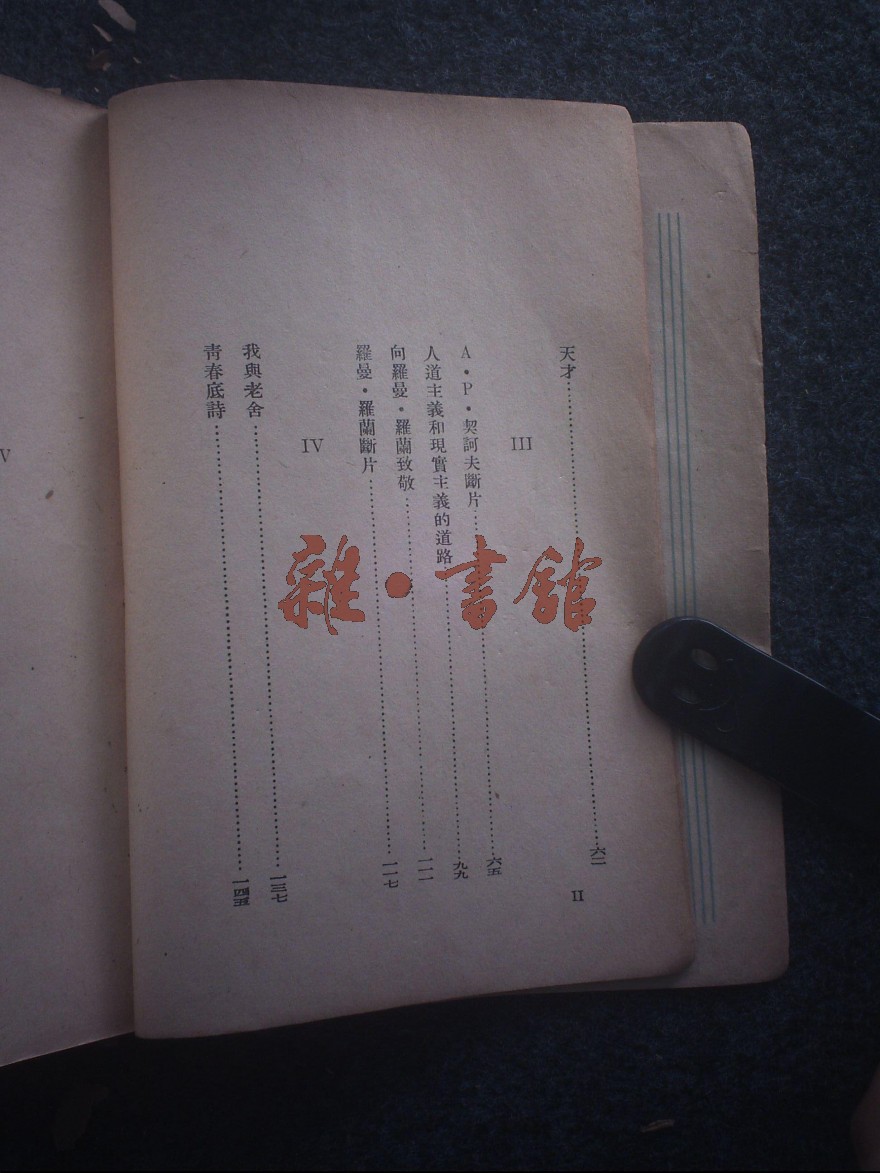 天才……六二
III
A·P·契訶夫斷片……六五
人道主義和現實主義的道路……九九
向羅曼·羅蘭致敬……一一一
羅曼·羅蘭斷片……一一七
IV
我與老舍……一三七
靑春底詩……一四五
II
V
雜·書館